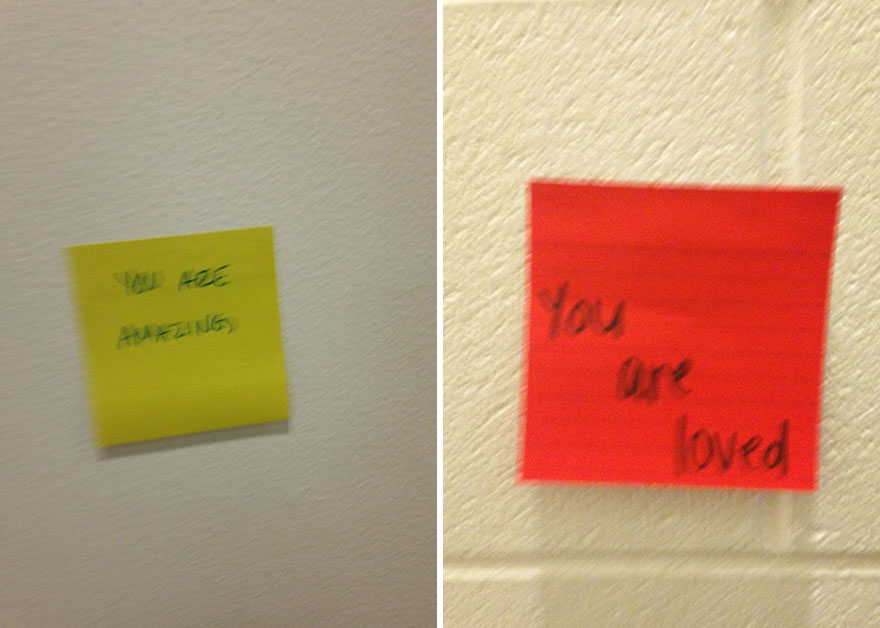 YOU ARE
AMAZING
You
are
loved